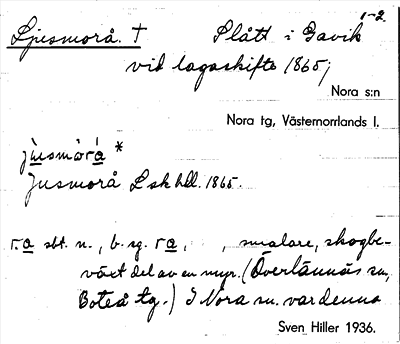 1-2
Ljusmorå. † Slått i Gavik
vid lagaskifte 1865;
Nora s:n
Nora tg, Västernorrlands l.
jùsmòrá *
Jusmorå Lskhdl. 1865.
r.a sbt. n., b. sg. ra, , smalare, skogbe-
växt del av en myr. (Överlännäs sn,
Boteå tg.) I Nora sn. var denna
Sven Hiller 1936.